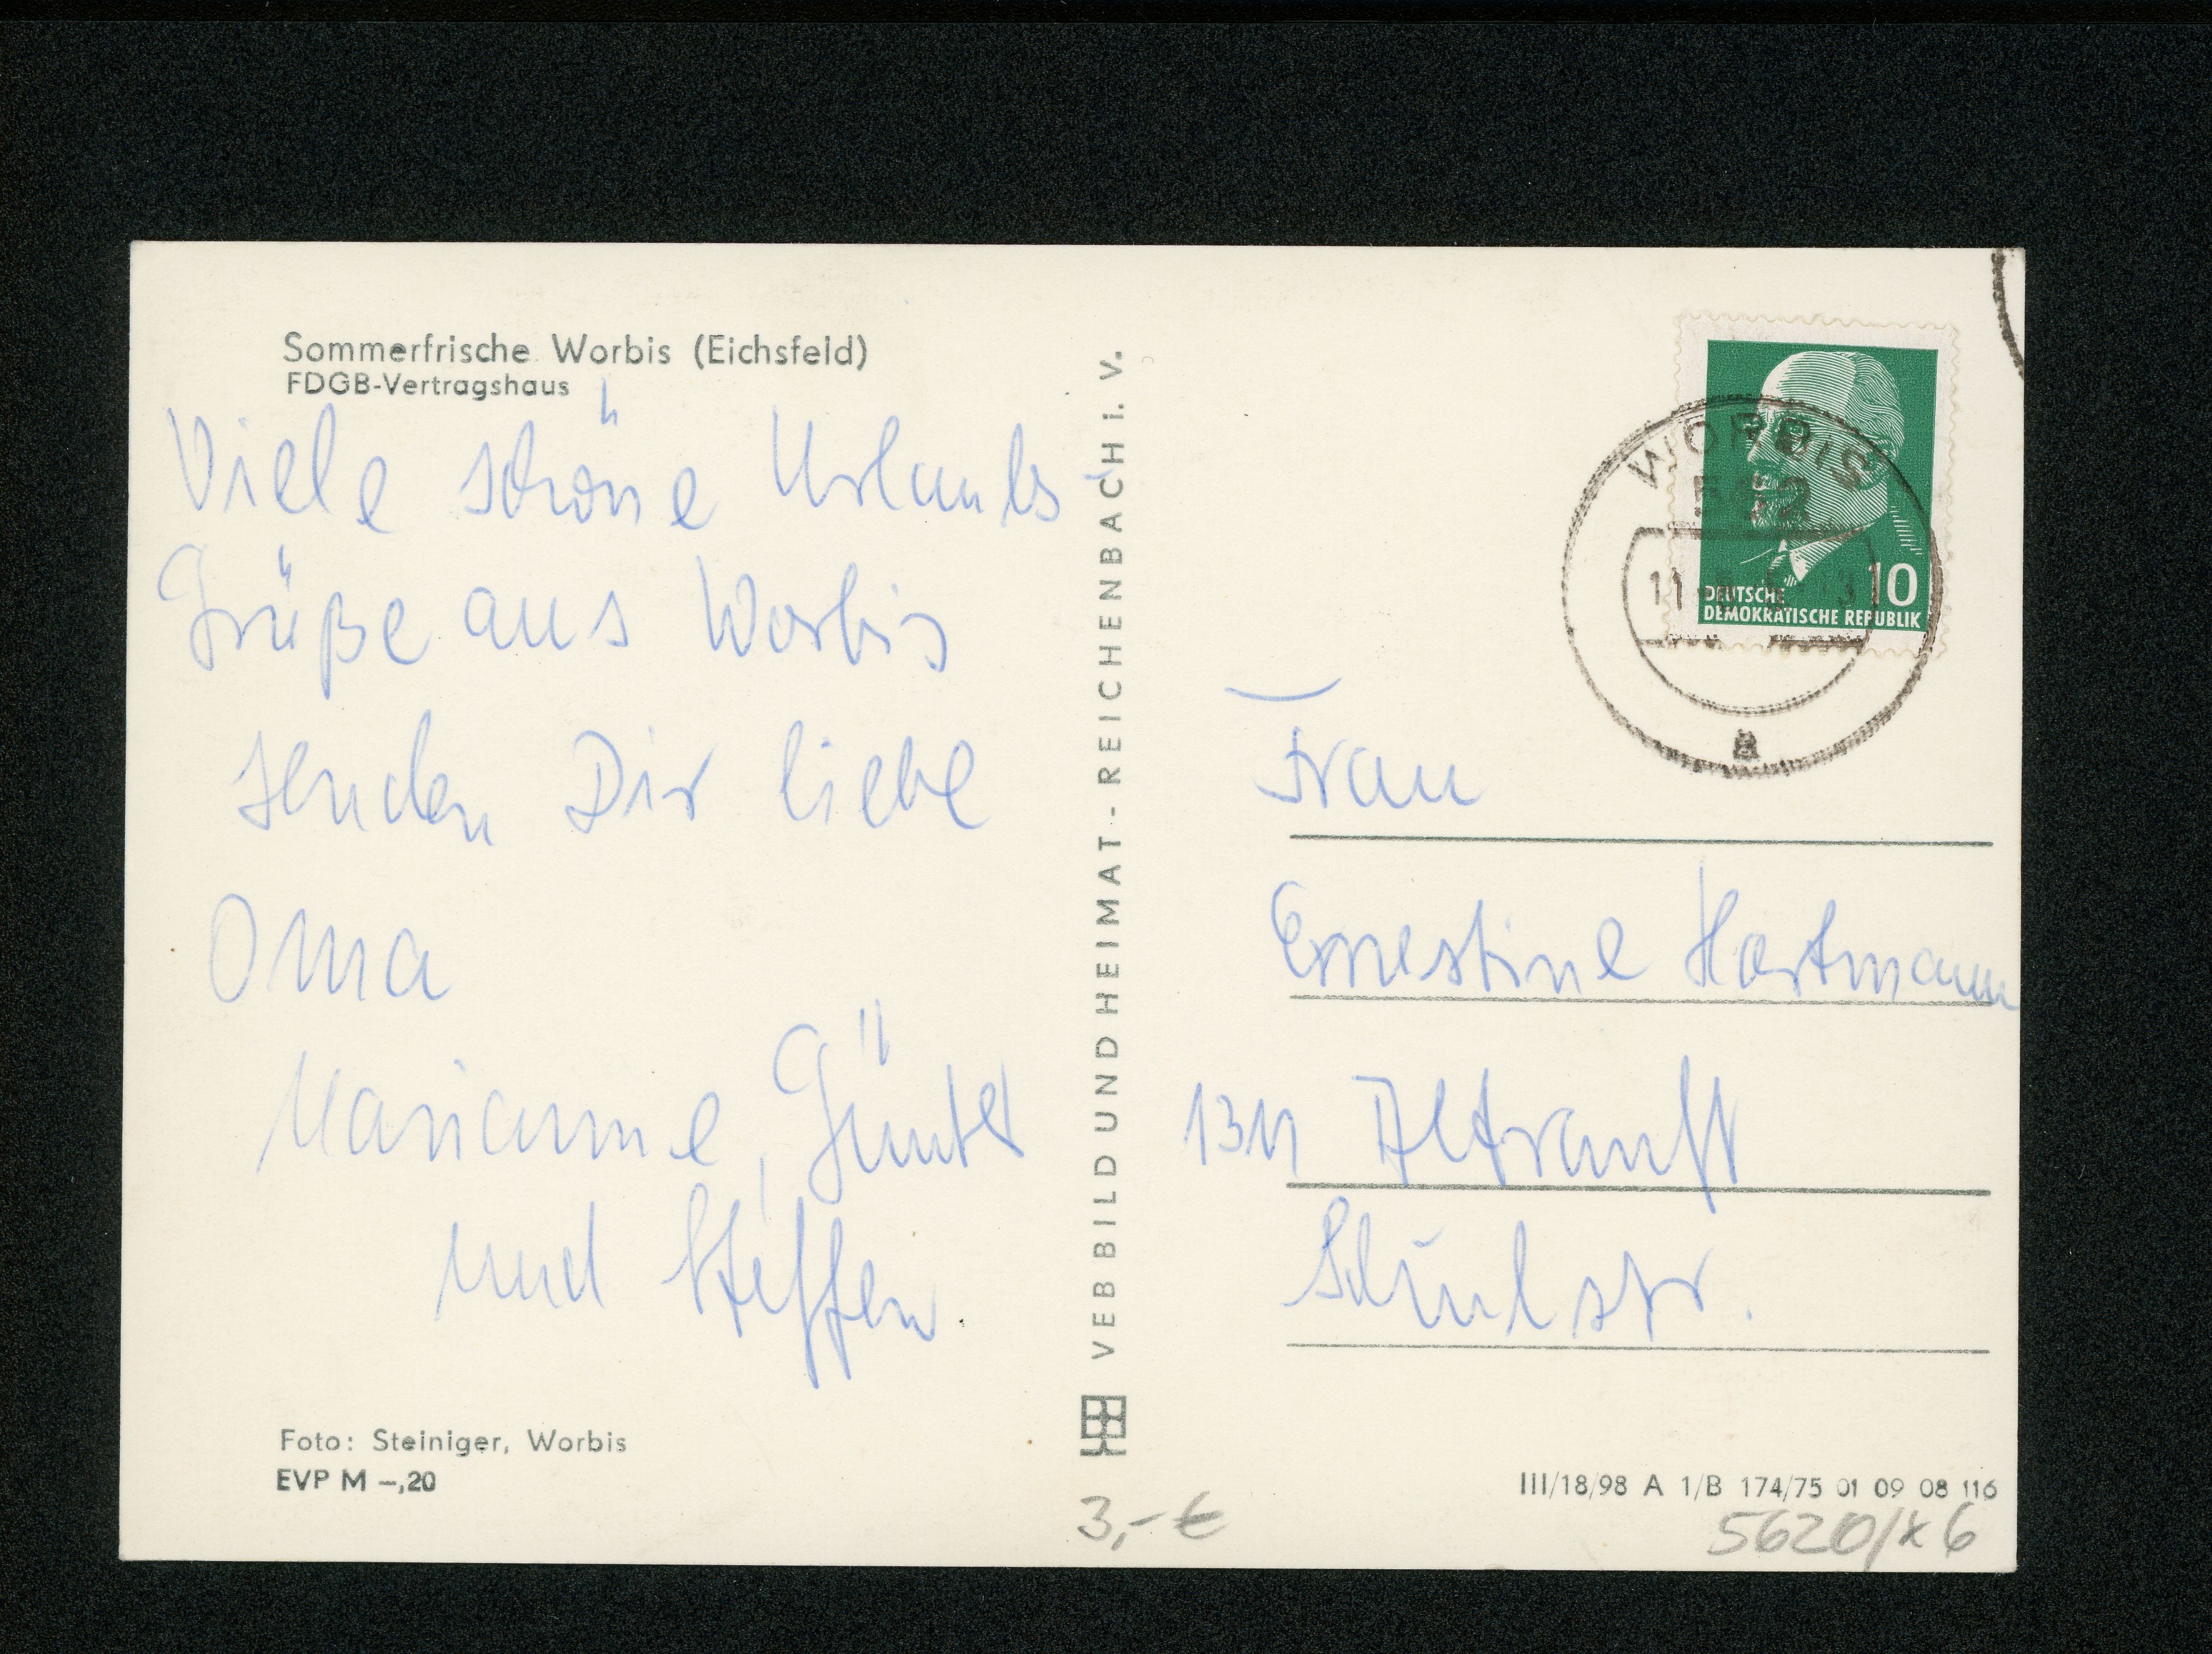 Sommerfrische Worbis (Eichsfeld)
FDGB-Vertragshaus
Viele schöne Urlaubs-
Grüße aus Worbis
senden Dir liebe
Oma
Marianne, Günter
und Steffen.
Foto: Steiniger, Worbis
EVP M –,20
VEB BILD UND HEIMAT - REICHENBACH i. V.
3,- €
WORBIS
11
a
10
DEUTSCHE
DEMOKRATISCHE REPUBLIK
Frau
Ernestine Hartmann
1311 Altranft
Schulstr.
III/18/98 A 1/B 174/75 01 09 08 116
5620/x6